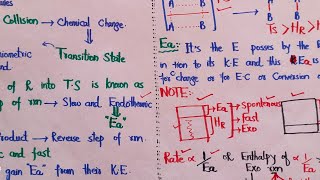 Collision → Chemical Change
Transition State
of R into T.S is known as
step of rxn → Slow and Endothermic
"Ea"
Product → Reverse step of rxn
and fast
gain "Ea" from their K.E
A B
A B
Ts > HR >
Ea: It's the E posses by the
in tion to its K.E and this Ea is
for change or for E.C or Conversion
NOTE:
Ea → Spontenous
HR → Fast
→ Exo
Rate ∝ 1/Ea OR Enthalpy of rxn ∝ 1/Ea